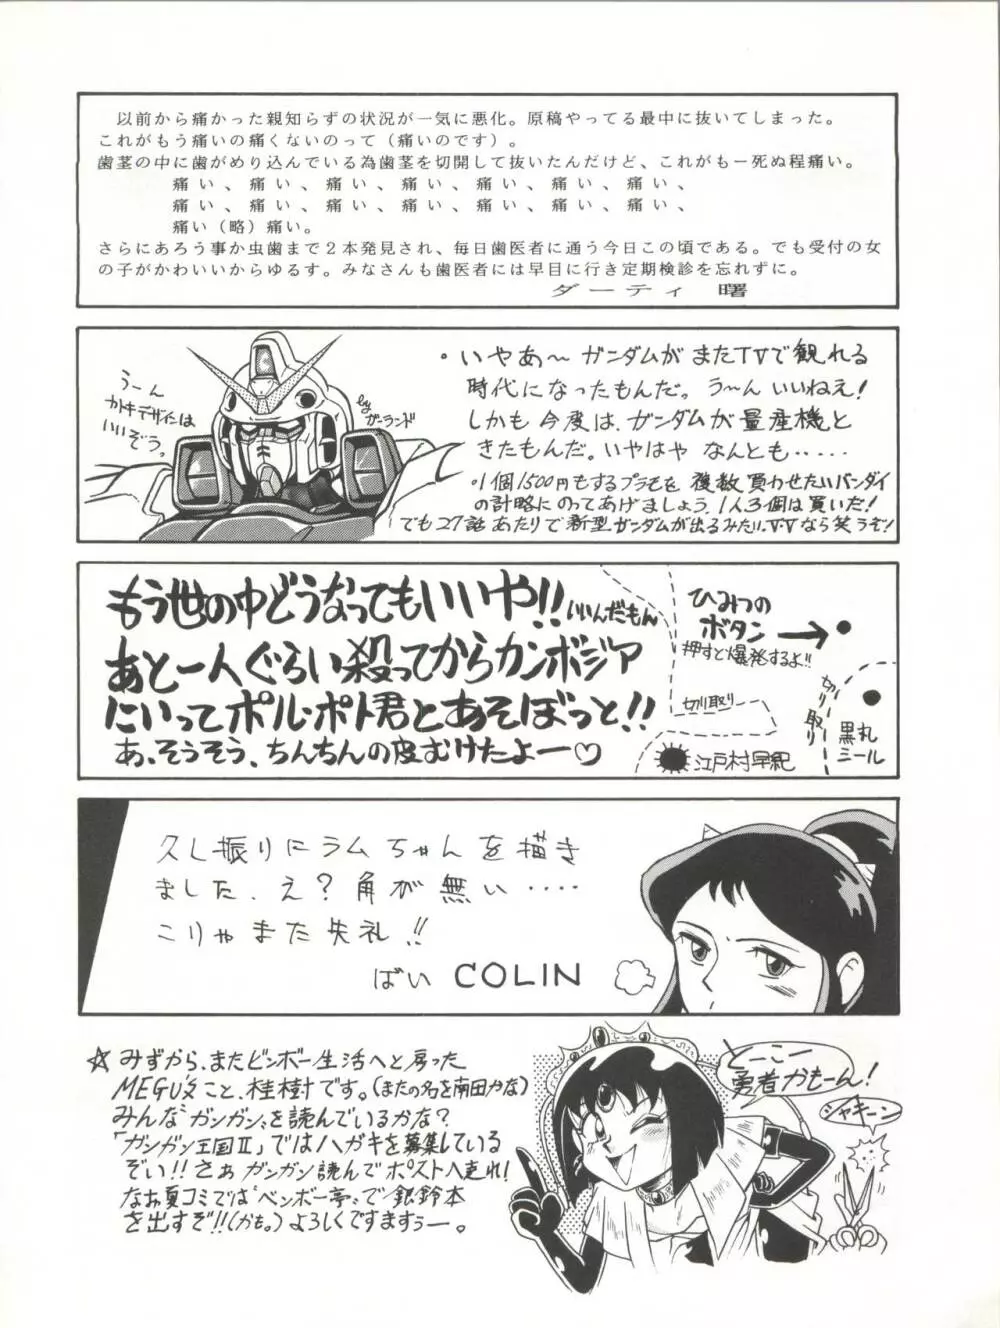 以前から痛かった親知らずの状況が一気に悪化。原稿やってる最中に抜いてしまった。
これがもう痛いの痛くないのって（痛いのです）。
歯茎の中に歯がめり込んでいる為歯茎を切開して抜いたんだけど、これがも一死ぬ程痛い。
痛い、痛い、痛い、痛い、痛い、痛い、痛い、
痛い、痛い、痛い、痛い、痛い、痛い、痛い、
痛い（略）痛い。
さらにあろう事か虫歯まで２本発見され、毎日歯医者に通う今日この頃である。でも受付の女
の子がかわいいからゆるす。みなさんも歯医者には早目に行き定期検診を忘れずに。
ダーティ 曙
う〜ん
カトキデザインは
いいぞうっ
by ガーランド
・いやあ〜 ガンダムが またTVで観れる
時代になったもんだ。う〜ん いいねえ！
しかも 今度は、ガンダムが 量産機と
きたもんだ。いやはや なんとも・・・・・
・1個1500円もするプラモを 複数 買わせたいバンダイ
の計略に のってあげましょう。1人3個は買いだ！
でも27話あたりで新型ガンダムが出るみたい。VVなら笑うぞ！
もう世の中どうなってもいいや!! いいんだもん
あと一人ぐらい殺ってからカンボジア
にいってポル・ポト君とあそぼっと!!
あ、そうそう、ちんちんの皮むけたよー♡
ひみつの
ボタン→
押すと爆発するよ!!
切り取り
切り取り
黒丸
シール
江戸村早紀
久し振りにラムちゃんを描き
ました、え？角が無い・・・・
こりゃまた失礼!!
ばい COLIN
☆みずから、またビンボー生活へと戻った
MEGU'Sこと、桂樹です。（またの名を南田かな）
みんな〝ガンガン〟を読んでいるかな？
「ガンガン王国Ⅱ」ではハガキを募集している
ぞい!! さぁ ガンガン読んでポストへ走れ！
なお夏コミでは〝ベンボー亭〟で銀鈴本
を出すぞ!!（かも。）よろしくですますぅー。
とーこー
勇者かもーん！
シャキーン